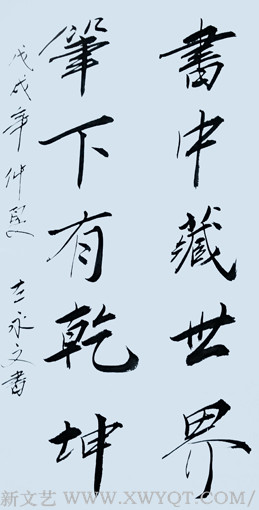 書中藏世界
筆下有乾坤
戊戌年仲夏 左永文書
新文艺 www.XWYQT.COM/